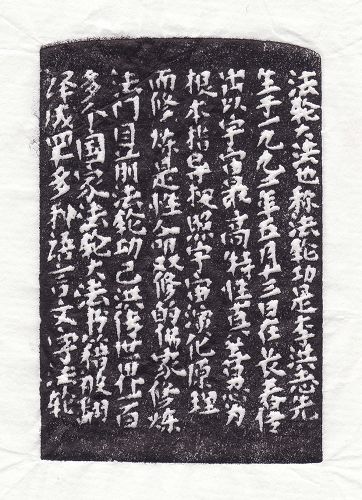 法轮大法也称法轮功是李洪志先
生于一九九二年五月十三日在长春传
出以宇宙最高特性真善忍为
根本指导按照宇宙演化原理
而修炼是性命双修的佛家修炼
法门目前法轮功已洪传世界一百
多个国家法轮大法书籍被翻
译成多种语言文字法轮